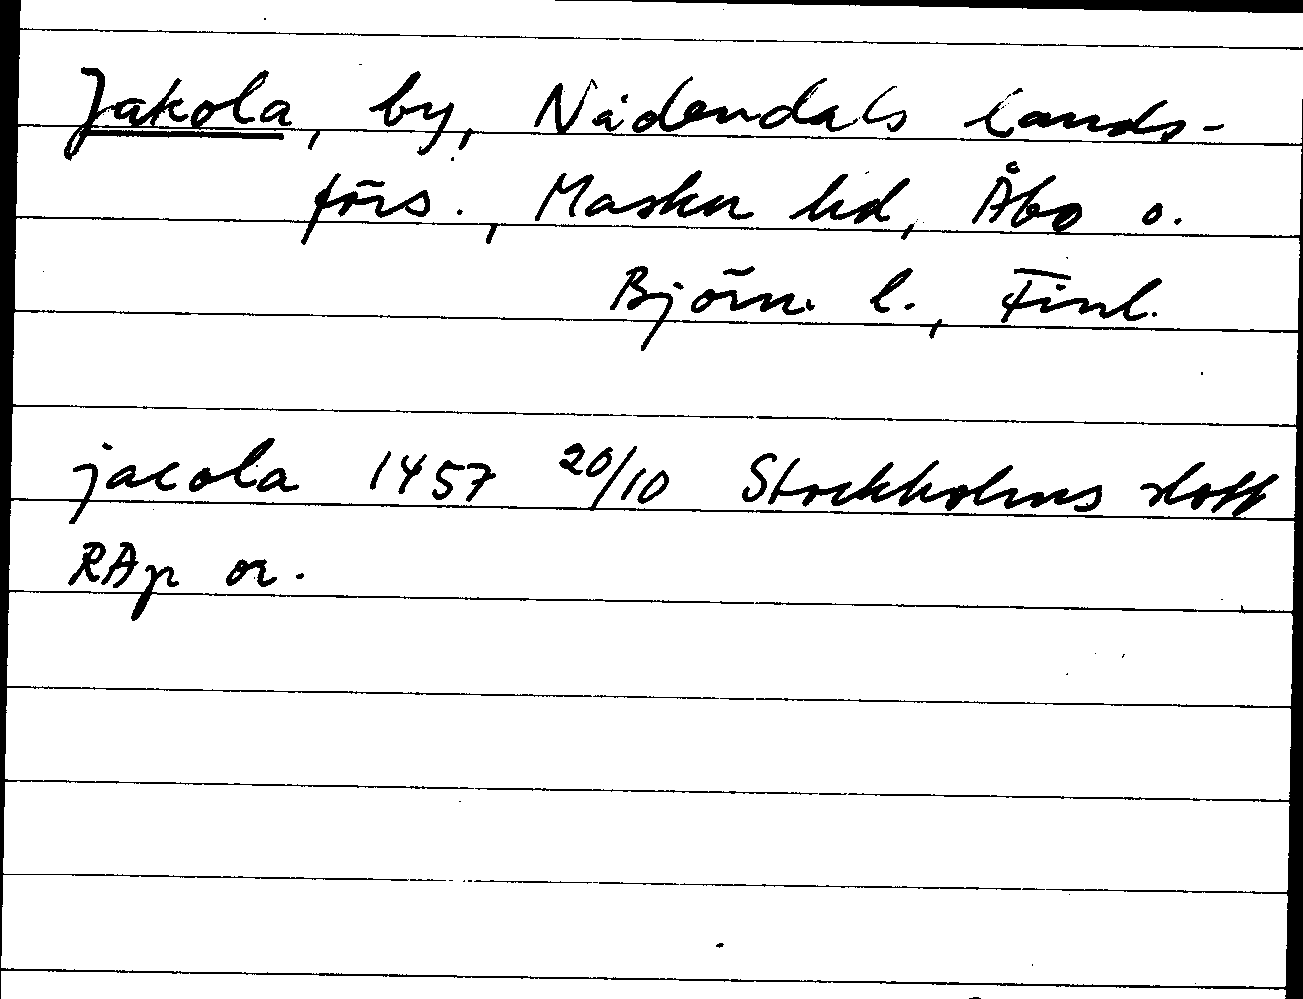 Jakola, by, Nådendals lands-
förs., Masku hd, Åbo o.
Björn. l., Finl.
jacola 1457 20/10 Stockholms slott
RAp or.